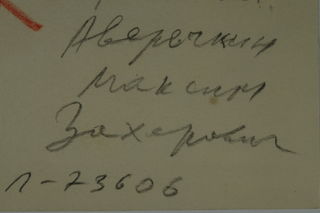 Аверечкин
Максим
Захарович
Л-73606